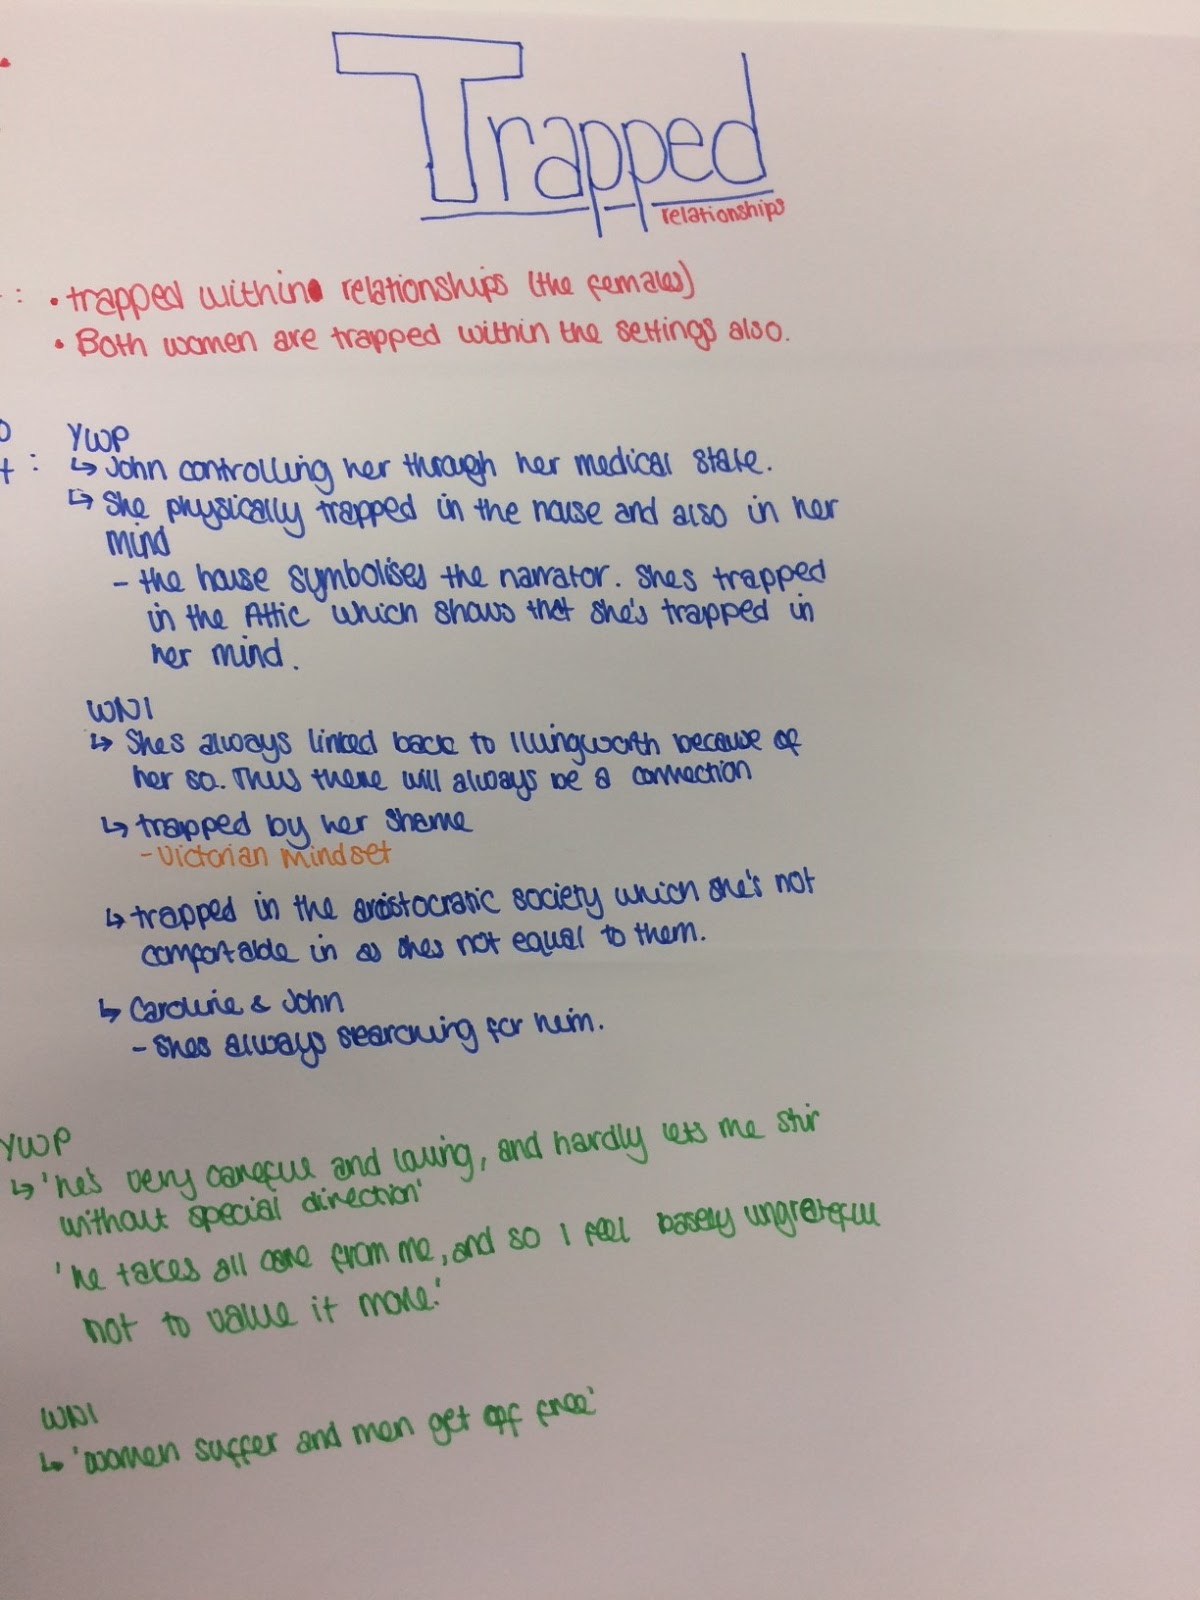 Trapped
relationships
: • trapped within relationships (the females)
• Both women are trapped within the settings also.
YWP
: ↳ John controlling her through her medical state.
↳ She physically trapped in the house and also in her
mind
- the house symbolises the narrator. Shes trapped
in the Attic which shows that she's trapped in
her mind.
WNI
↳ Shes always linked back to Illingworth because of
her so. Thus there will always be a connection
↳ trapped by her shame
- Victorian Mindset
↳ trapped in the aristocratic society which she's not
comfortable in as shes not equal to them.
↳ Caroline & John
- Shes always searching for him.
YWP
↳ 'he's very careful and loving, and hardly lets me stir
without special direction'
'he takes all care from me, and so I feel basely ungrateful
not to value it more.'
WNI
↳ 'women suffer and men get off free'